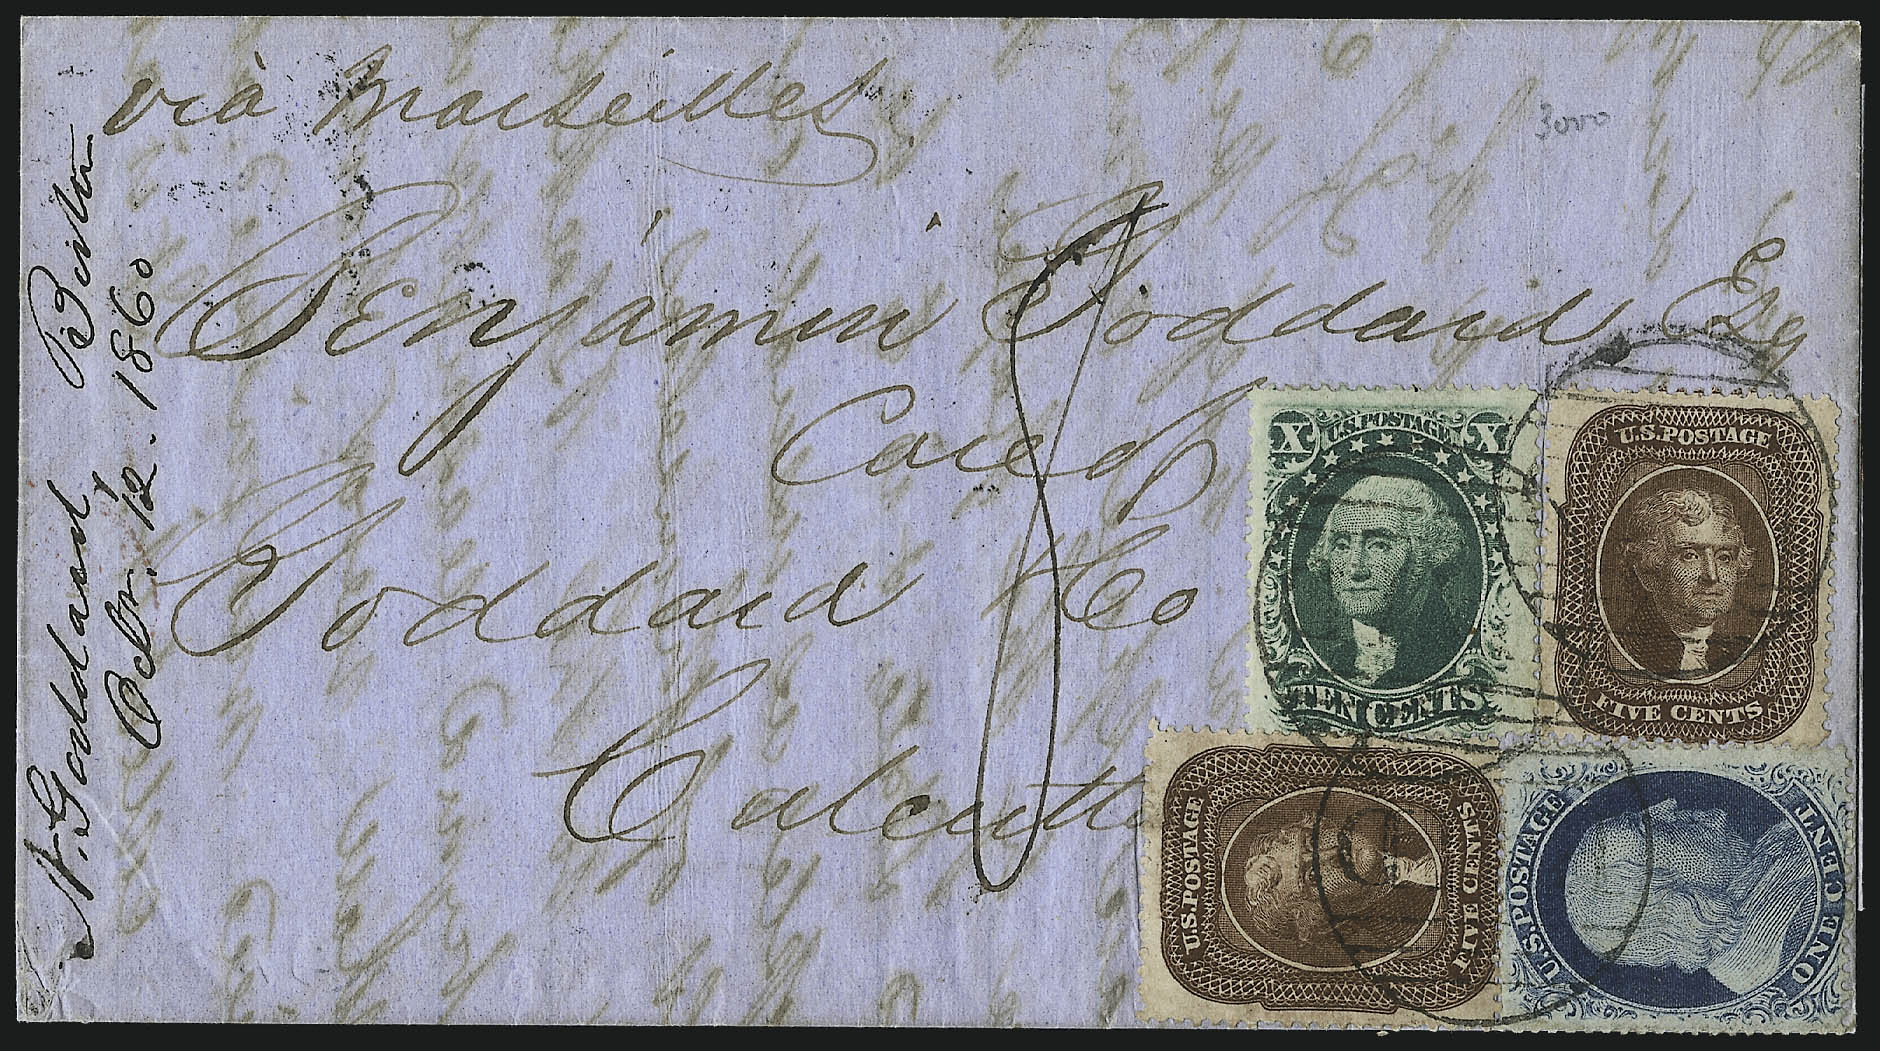 via Marseilles
3000
Benjamin Goddard Esq
Care of
Goddard & Co
Calcutta
N. Goddard Boston
Octr. 12. 1860
X U.S.POSTAGE X
TEN CENTS
U.S.POSTAGE
FIVE CENTS
U.S.POSTAGE
FIVE CENTS
U.S.POSTAGE
ONE CENT